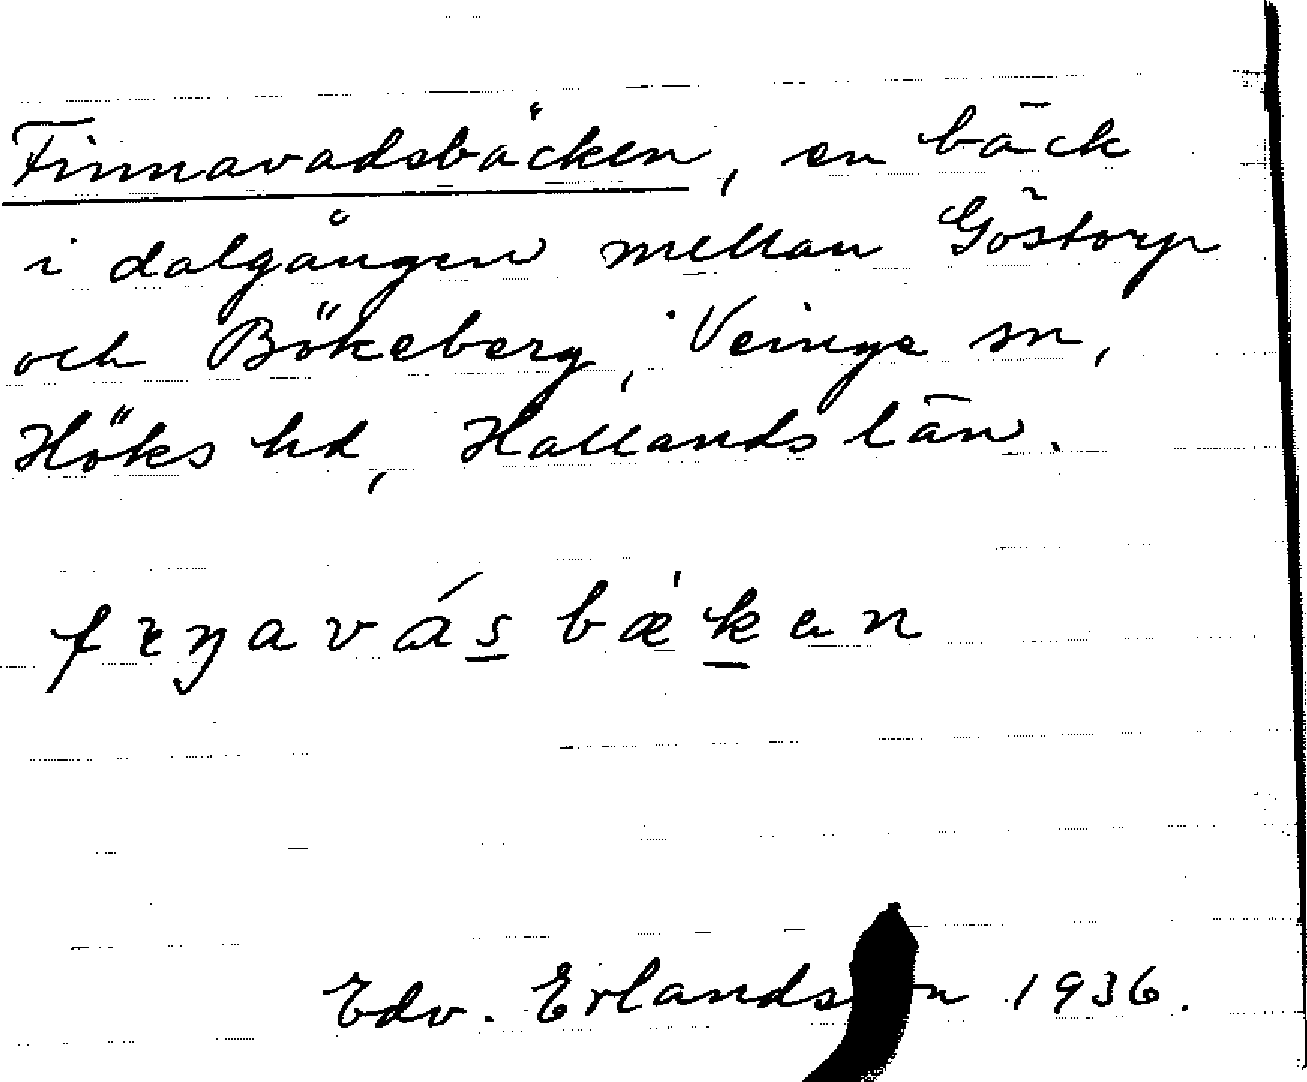 Finnavadsbäcken, en bäck
i dalgången mellan Göstorp
och Bökeberg, Veinge sn,
Höks hd, Hallands län.
fɪŋavás bæ'kan
Edv. Erlandson 1936.